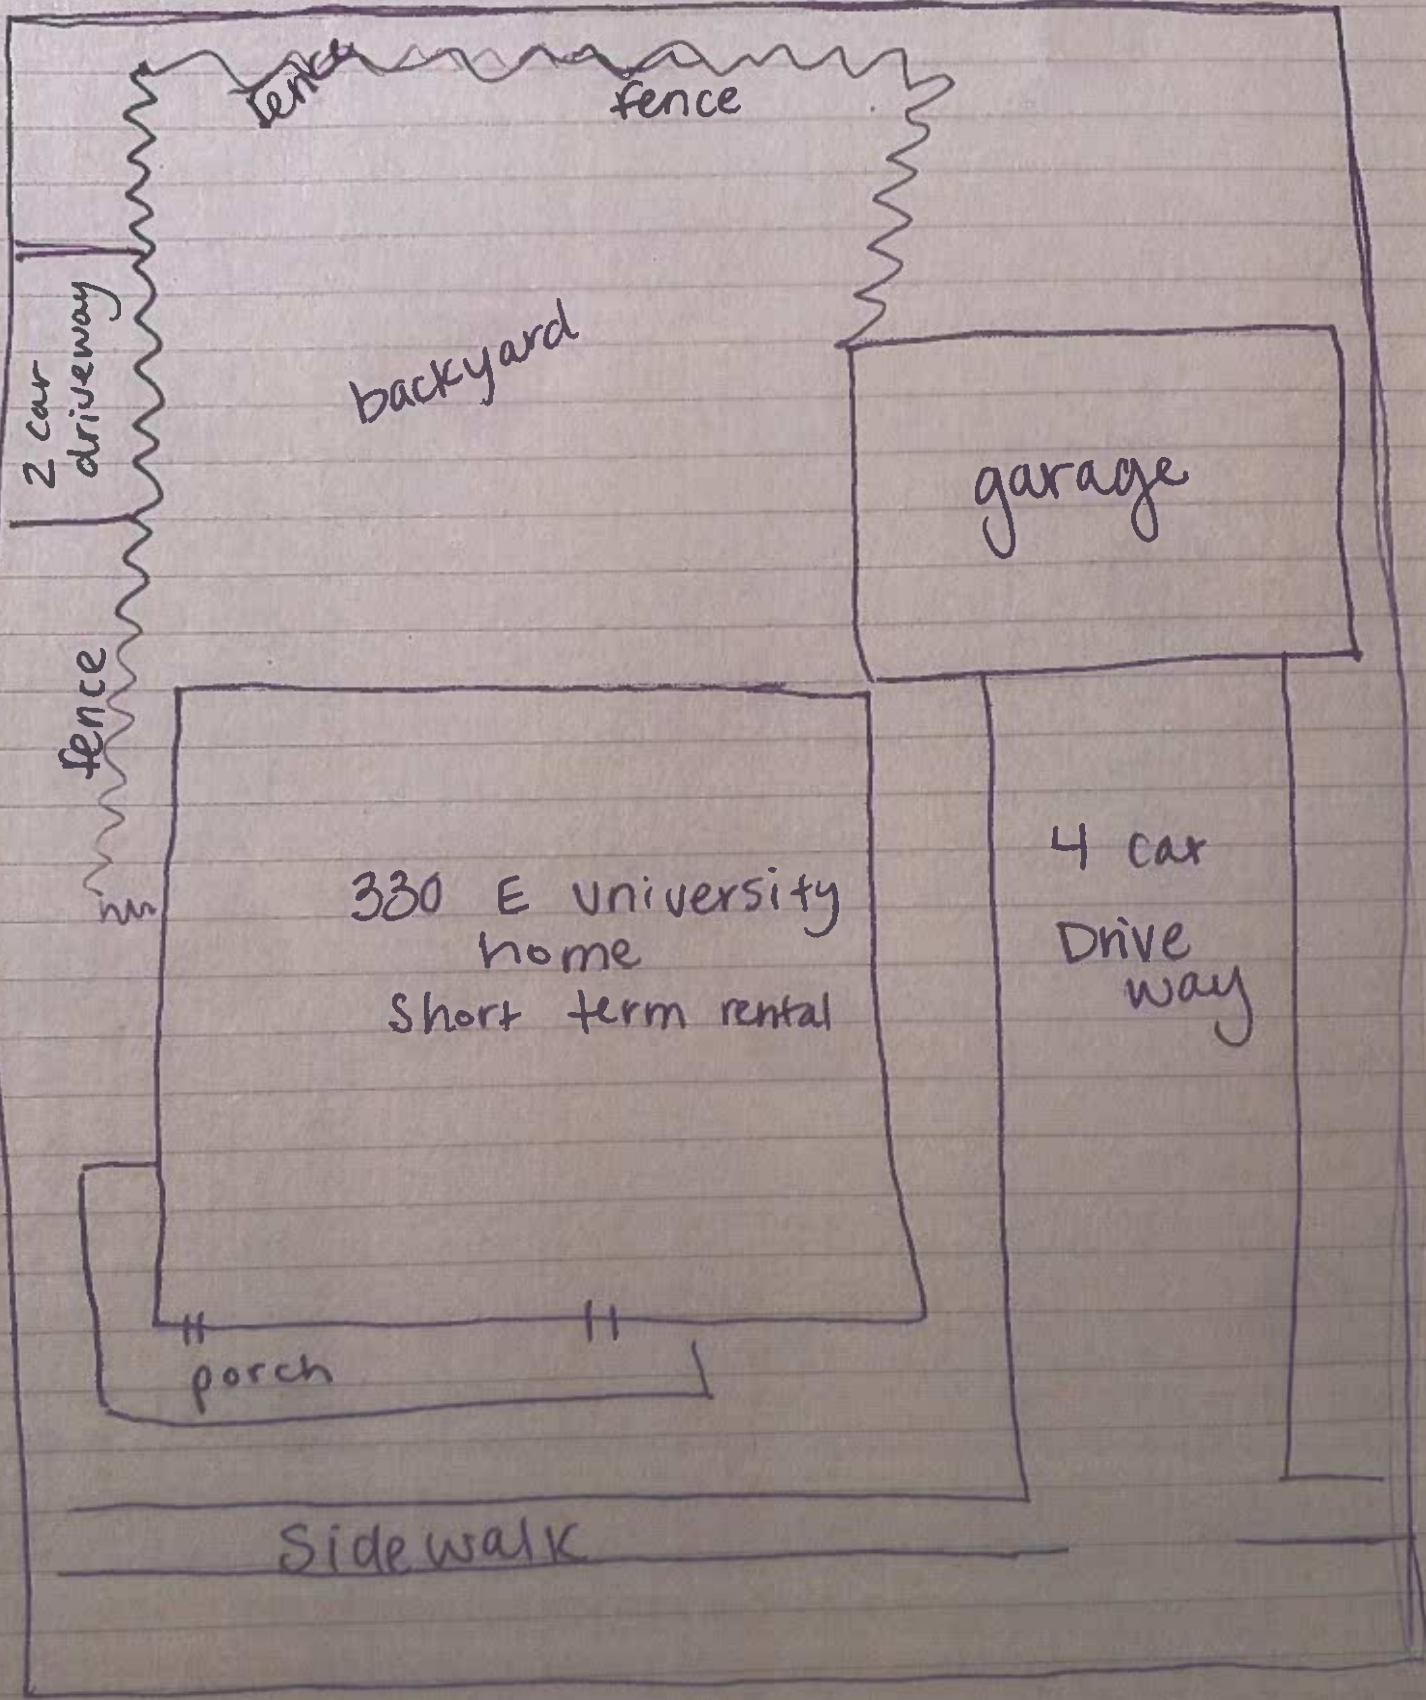 fence
fence
2 car
driveway
backyard
garage
fence
330 E University
home
Short term rental
4 car
Drive
way
porch
Sidewalk